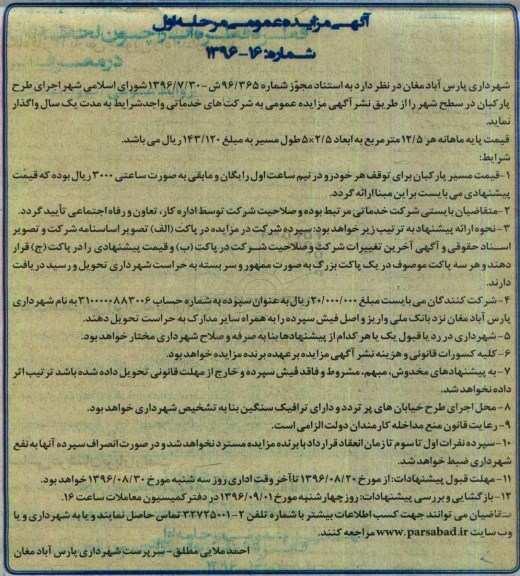 آگهی مزایده عمومی مرحله اول
شماره: ۱۶-۱۳۹۶
شهرداری پارس آباد مغان در نظر دارد به استناد مجوز شماره ۹۶/۳۶۵ش -۱۳۹۶/۷/۳۰ شورای اسلامی شهر اجرای طرح
پارکبان در سطح شهر را از طریق نشر آگهی مزایده عمومی به شرکت های خدماتی واجد شرایط به مدت یک سال واگذار
نماید.
قیمت پایه ماهانه هر ۱۲/۵ متر مربع به ابعاد ۲/۵×۵ طول مسیر به مبلغ ۱۴۳/۱۲۰ ریال می باشد.
شرایط:
۱-قیمت مسیر پارکبان برای توقف هر خودرو در نیم ساعت اول رایگان و مابقی به صورت ساعتی ۳۰۰۰ ریال بوده که قیمت
پیشنهادی می بایست بر این مبنا ارائه گردد.
۲-متقاضیان بایستی شرکت خدماتی مرتبط بوده و صلاحیت شرکت توسط اداره کار، تعاون و رفاه اجتماعی تأیید گردد.
۳-نحوه ارائه پیشنهاد به ترتیب زیر خواهد بود: سپرده شرکت در مزایده در پاکت (الف) تصویر اساسنامه شرکت و تصویر
اسناد حقوقی و آگهی آخرین تغییرات شرکت و صلاحیت شرکت در پاکت (ب) و قیمت پیشنهادی را در پاکت (ج) قرار
دهند و هر سه پاکت موصوف در یک پاکت بزرگ به صورت ممهور و سر بسته به حراست شهرداری تحویل و رسید دریافت
دارند.
۴-شرکت کنندگان می بایست مبلغ ۲۰/۰۰۰/۰۰۰ ریال به عنوان سپرده به شماره حساب ۳۱۰۰۰۰۰۸۸۳۰۰۶ به نام شهرداری
پارس آباد مغان نزد بانک ملی واریز و اصل فیش سپرده را به همراه سایر مدارک به حراست تحویل دهند.
۵-شهرداری در رد یا قبول یک یا هر کدام از پیشنهادها بنا به صرفه و صلاح شهرداری مختار خواهد بود.
۶-کلیه کسورات قانونی و هزینه نشر آگهی مزایده بر عهده برنده مزایده خواهد بود.
۷-به پیشنهادهای مخدوش، مبهم، مشروط و فاقد فیش سپرده و خارج از مهلت قانونی تحویل داده شده باشد ترتیب اثر
داده نخواهد شد.
۸-محل اجرای طرح خیابان های پر تردد و دارای ترافیک سنگین بنا به تشخیص شهرداری خواهد بود.
۹-رعایت قانون منع مداخله کارمندان دولت الزامی است.
۱۰-سپرده نفرات اول تا سوم تا زمان انعقاد قرارداد با برنده مزایده مسترد نخواهد شد و در صورت انصراف سپرده آنها به نفع
شهرداری ضبط خواهد شد.
۱۱-مهلت قبول پیشنهادات: از مورخ ۱۳۹۶/۰۸/۲۰ تا آخر وقت اداری روز سه شنبه مورخ ۱۳۹۶/۰۸/۳۰ خواهد بود.
۱۲-بازگشایی و بررسی پیشنهادات: روز چهارشنبه مورخ ۱۳۹۶/۰۹/۰۱ در دفتر کمیسیون معاملات ساعت ۱۶.
متقاضیان می توانند جهت کسب اطلاعات بیشتر با شماره تلفن ۲-۳۲۷۲۵۰۰۱ تماس حاصل نمایند و یا به شهرداری و یا
وب سایت www.parsabad.ir مراجعه کنند.
احمد ملایی مطلق- سرپرست شهرداری پارس آباد مغان